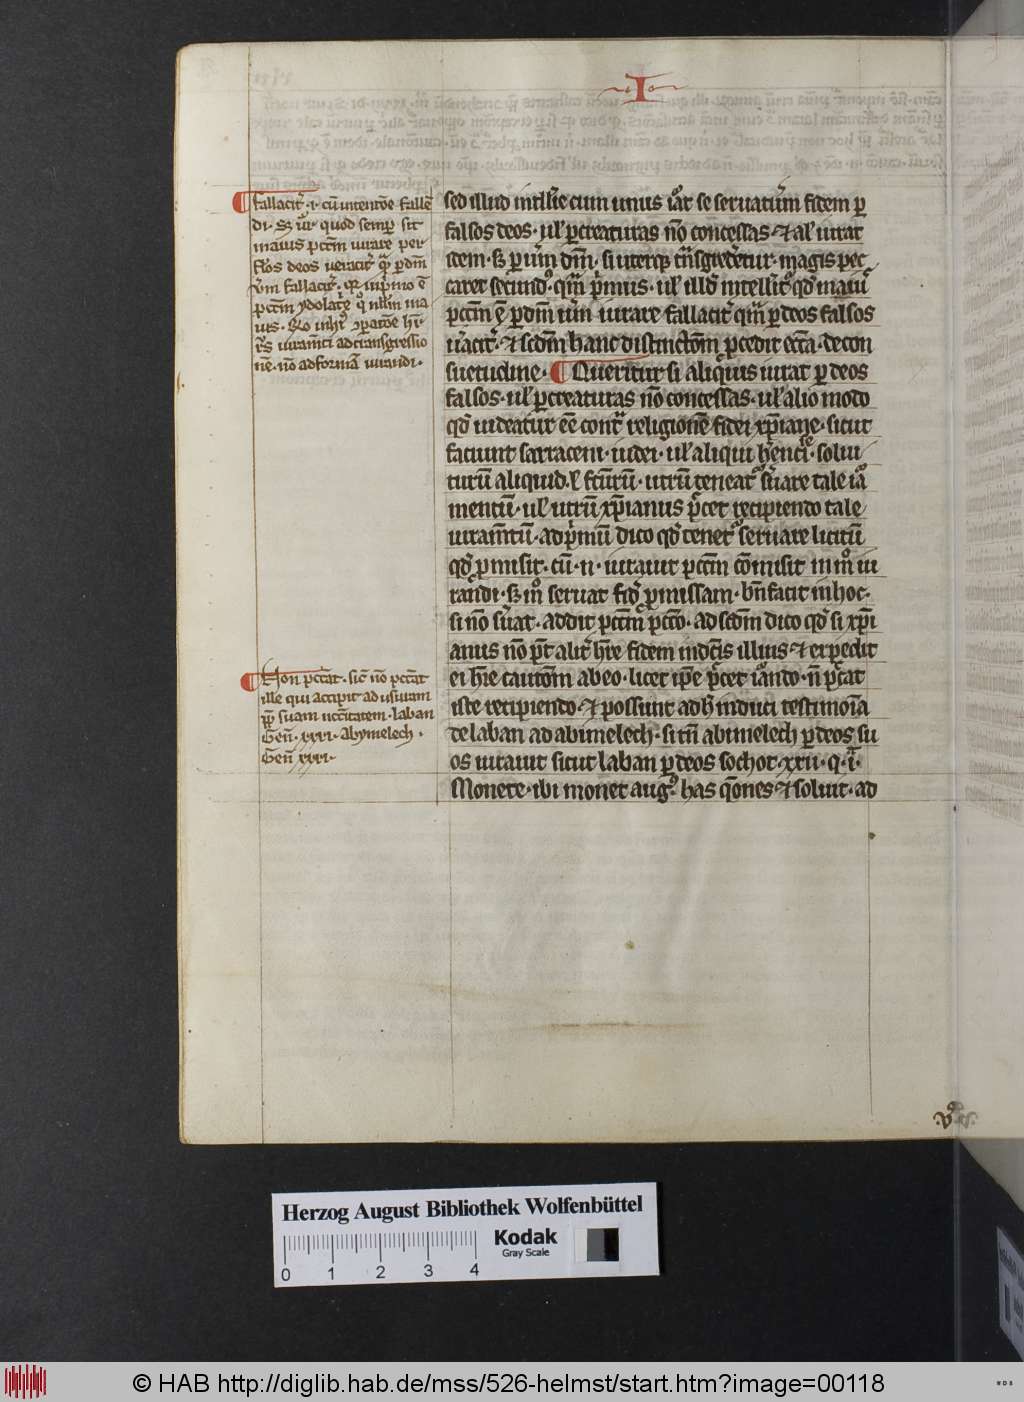 I
fallaciť· i· cū intentōe fallē
di· Sꝫ ūr quod semꝑ sit
maius pctm iurare per
fłos deos ueraciť qm̄ ꝑ dm̄
v̄m fallaciť· qꝛ in pͥmo ē
pctm ydolatᵉe qͦ nłłm ma
ius·
iuram̄ti ad transgressio
nē· nō ad formā iurandi·
sed illud intłłe cum unus iᵃͦt se seruatuꝝ fidem ꝑ
falsos deos· uł ꝑ creaturas nō concessas· ⁊ al' iurat
idem· sꝫ ꝑ uꝝ dm̄· si uterqꝫ tͣnsgredᵉetur· magis pec
caret secundꝰ qm̄ pͥmus· uł illd' intelliť qd' maiꝰ
pctm ē ꝑ dm̄ uꝝ iurare fallaciť qm̄ ꝑ deos falsos
uᵉaciť· ⁊ scdm hanc distinctōm ꝓcedit ecc̄a· de con
suetudine· ¶ Queritur si aliquis iurat ꝑ deos
falsos· uł ꝑ creaturas nō concessas· uł alio modo
qd' uideatur ēē contͣ religionē fidei xp̄iane· sicut
faciunt sarraceni· iudei· uł aliqui hᵉetici· solui
turū aliquid· uł fcūrū· utrū teneatᵘʳ sᵉuare tale iᵃͦ
mentū· uł utrū xp̄ianus pͤccet recipiendo tale
iuram̄tū· ad pͥmū dico qd' tenetᵘʳ seruare licitū
qd' ꝓmisit· cū· n· iurauit pctm cōmisit in mͦ iu
randi· sꝫ mͦ seruat fidē ꝓmissam· bn̄ facit in hoc·
si nō sᵉuat· addit pctm pctō· ad scdm dico qd' si xp̄i
anus nō pͦt aliť hr̄e fidem in dc̄is illius· ⁊ expedit
ei hr̄e cautōm ab eo· licet ip̄e pͤccet iᵃͦndo· n̄ pͤccat
iste recipiendo· ⁊ possunt ad h' induci testimōia
de laban ad abimelech· si tn̄ abimelech ꝑ deos su
os iurauit sicut laban ꝑ deos sochot· xxii· q· i·
Mouete· ibi mouet augꝰ has qōnes ⁊ soluit· ad
Non pctat· sic̄ nō pctat
ille qui accipit ad usuram
ꝓpͭ suam nccitatem· laban
Geñ· xxxi· Abymelech·
Geñ xxvi·
Herzog August Bibliothek Wolfenbüttel
Kodak
Gray Scale
0 1 2 3 4
© HAB http://diglib.hab.de/mss/526-helmst/start.htm?image=00118